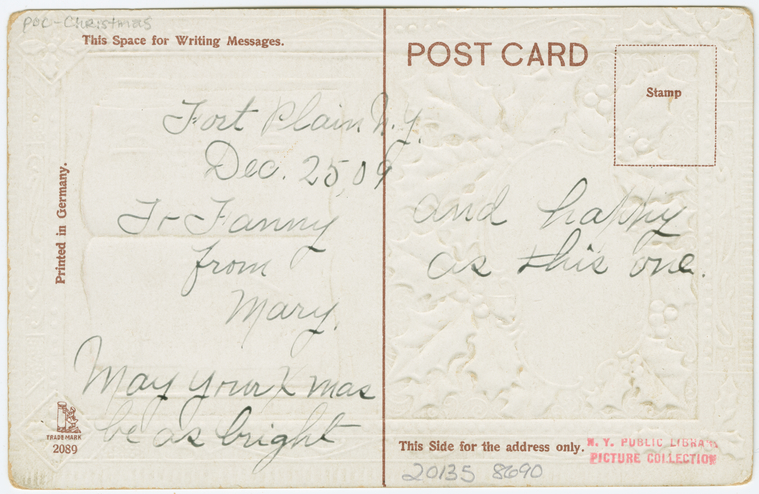 pbc-Christmas
This Space for Writing Messages.
POST CARD
Stamp
Printed in Germany.
Fort Plain N.Y.
Dec. 25, 09
To Fanny
from
Mary.
May your Xmas
be as bright
and happy
as this one.
TRADE MARK
2089
This Side for the address only.
N. Y. PUBLIC LIBRARY
PICTURE COLLECTION
20135 8690